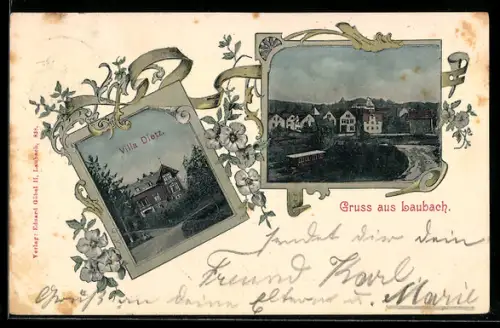 Villa Dietz.
Gruss aus Laubach.
Verlag: Eduard Göbel II, Laubach.
Sendet dir dein
Freund Karl.
Gruß an deine Eltern u. Marie